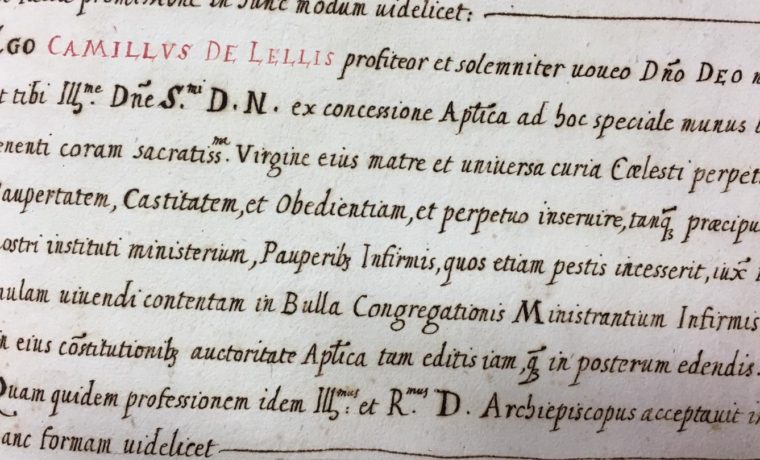 in hunc modum uidelicet:
EGO CAMILLVS DE LELLIS profiteor et solemniter uoueo Dño DEO
et tibi Illme. Dñe S.mi D. N. ex concessione Aptica ad hoc speciale munus
coram sacratissma. Virgine eius matre et uniuersa curia Cœlesti
Paupertatem, Castitatem, et Obedientiam, et perpetuo inseruire, tanqȝ
nostri instituti ministerium, Pauperibȝ Infirmis, quos etiam pestis incesserit, iux
uiuendi contentam in Bulla Congregationis Ministrantium Infirmis
in eius cōstitutionibȝ auctoritate Aptica tam editis iam, qȝ in posterum edendis.
Quam quidem professionem idem Illmus: et R.mus D. Archiepiscopus acceptauit
hanc formam uidelicet